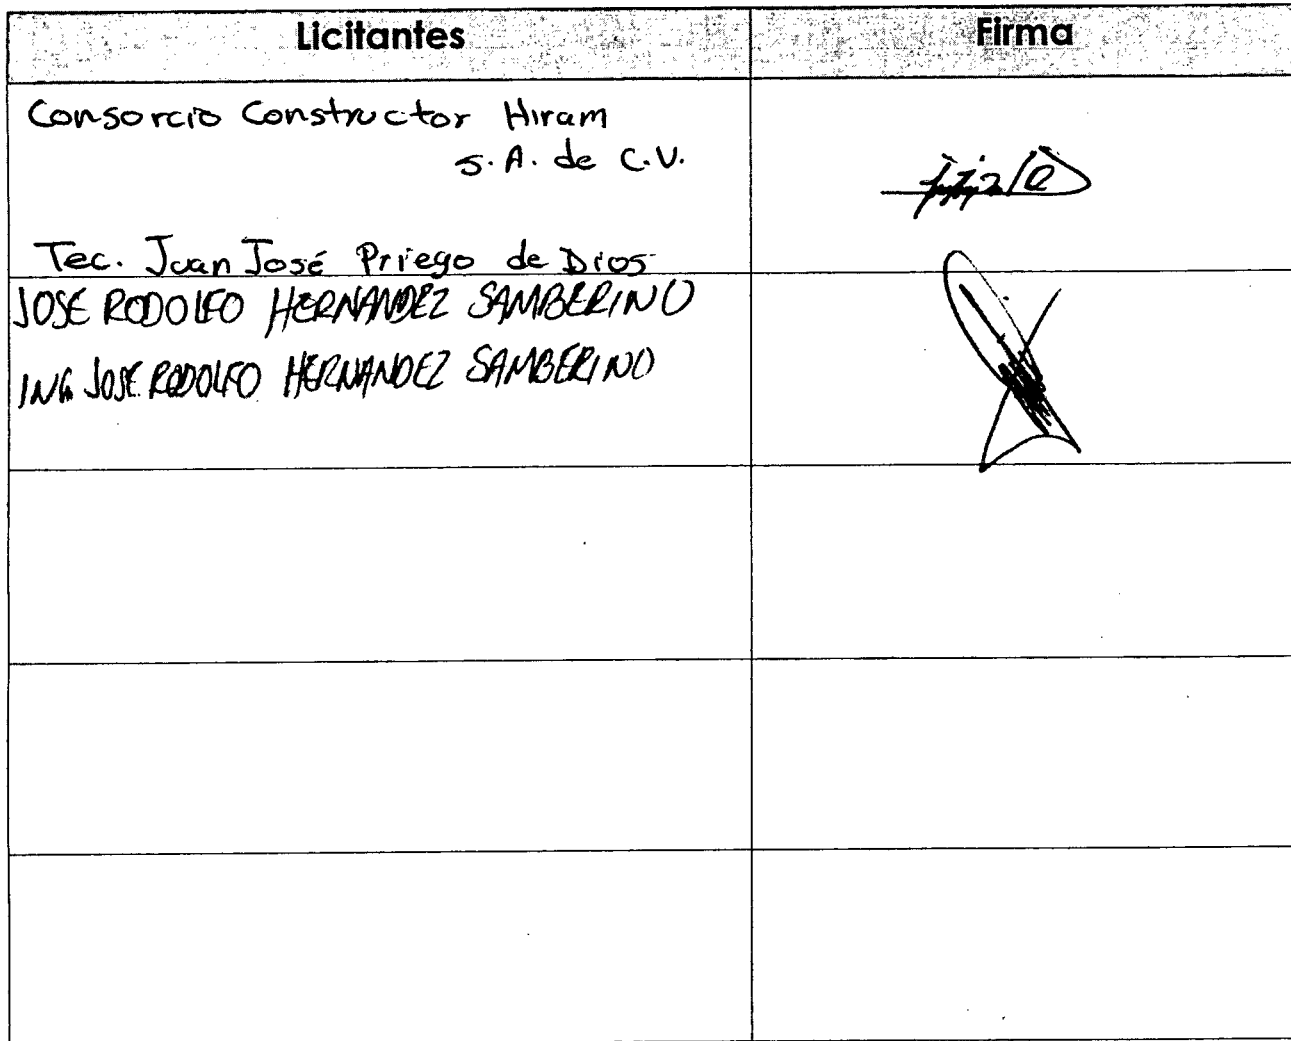 Licitantes
Firma
Consorcio Constructor Hiram
S.A. de C.V.
Tec. Juan José Priego de Dios
JOSE RODOLFO HERNANDEZ SAMBERINO
ING. JOSE RODOLFO HERNANDEZ SAMBERINO